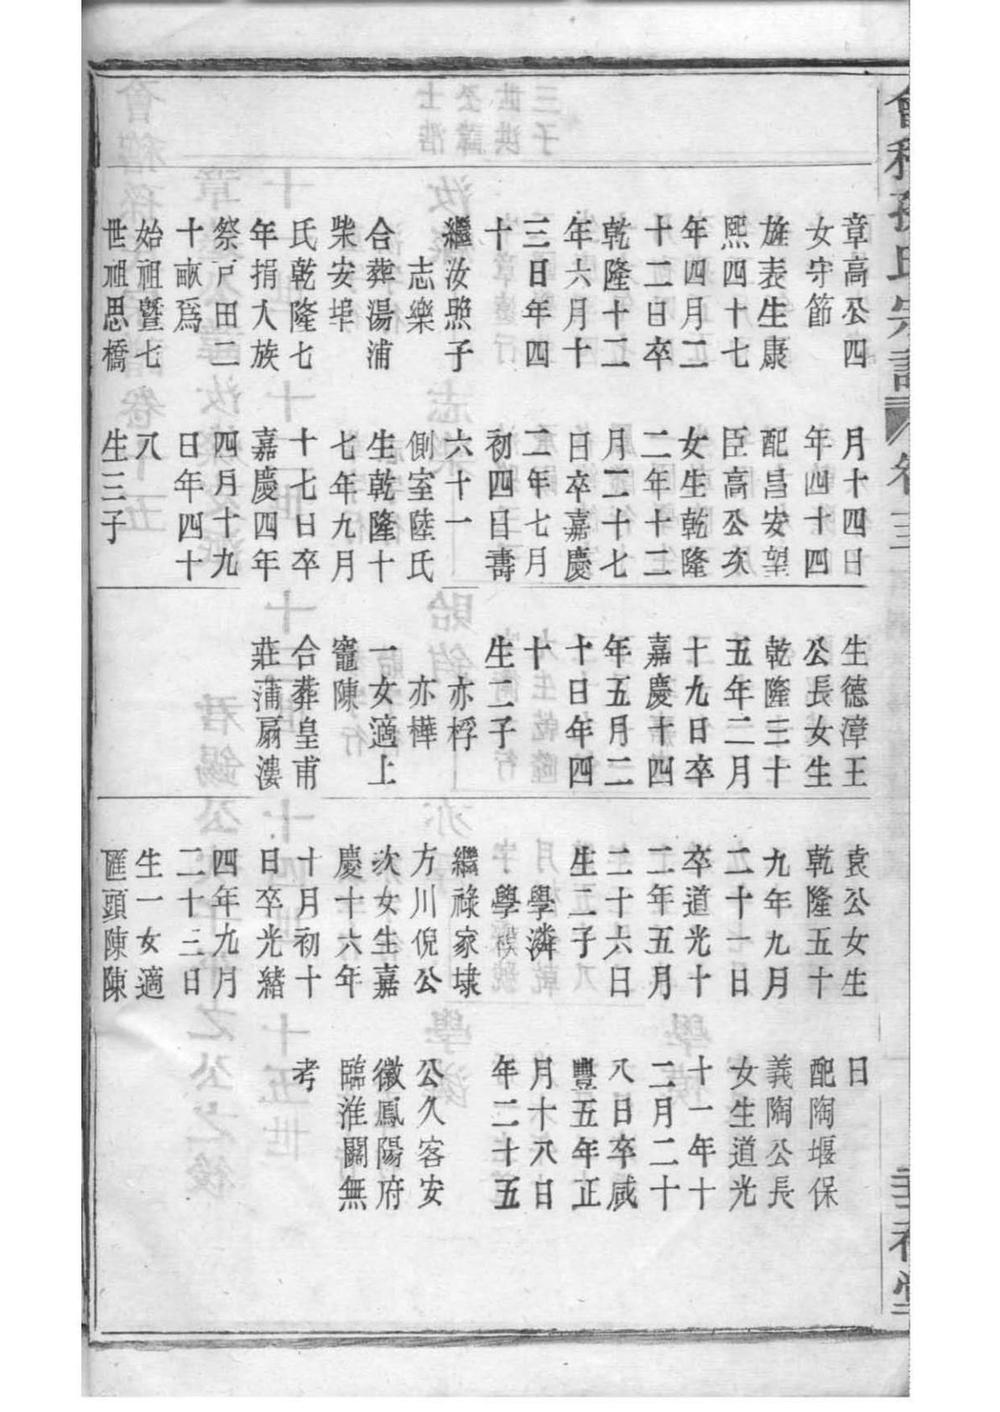 章高公四
女守節
旌表生康
熙四十七
年四月二
十二日卒
乾隆十二
年六月十
三日年四
十
繼汝照子
志樂
合葬湯浦
柴安埠
氏乾隆七
年捐入族
祭戸田二
十畝爲
始祖暨七
世祖思橋
月十四日
年四十四
配昌安望
臣高公次
女生乾隆
二年十二
月二十七
日卒嘉慶
二年七月
初四日壽
六十一
側室陸氏
生乾隆十
七年九月
十七日卒
嘉慶四年
四月十九
日年四十
八
生三子
生德漳王
公長女生
乾隆三十
五年二月
十九日卒
嘉慶十四
年五月二
十日年四
十
生二子
亦桴
亦樺
一女適上
竈陳
合葬皇甫
莊蒲扇漊
袁公女生
乾隆五十
九年九月
二十一日
卒道光十
二年五月
二十六日
生二子
學潾
學
繼祿家埭
方川倪公
次女生嘉
慶十六年
十月初十
日卒光緒
四年九月
二十三日
生一女適
匯頭陳陳
日
配陶堰保
義陶公長
女生道光
十一年十
二月二十
八日卒咸
豐五年正
月十八日
年二十五
公久客安
徽鳳陽府
臨淮關無
考